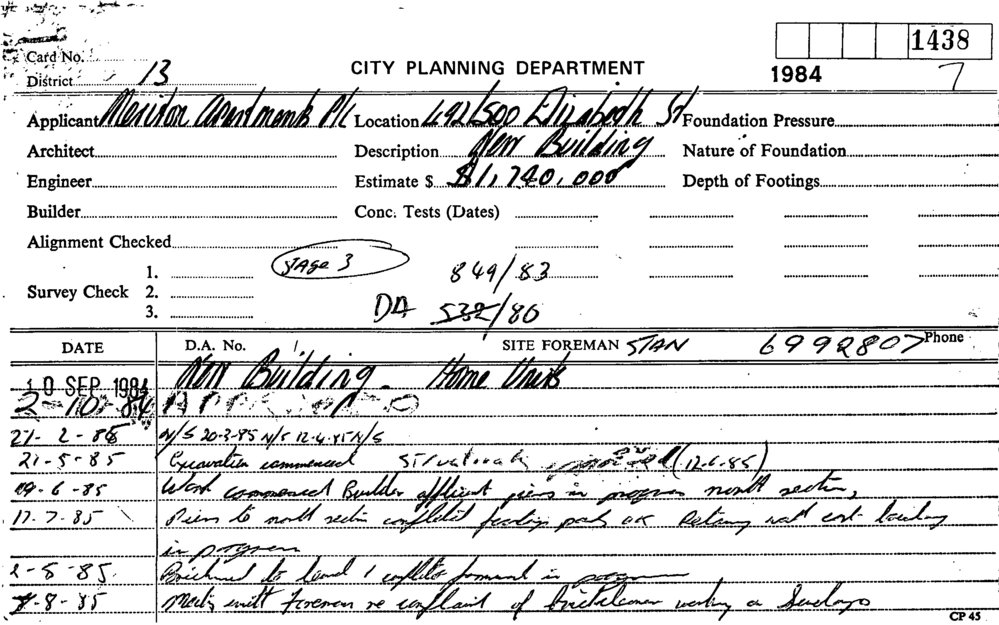 1438
Card No.
District 13
CITY PLANNING DEPARTMENT
1984 7
Applicant Meriton Apartments P/L Location 492/500 Elizabeth St Foundation Pressure
Architect Description New Building Nature of Foundation
Engineer Estimate $ $1,740,000 Depth of Footings
Builder Conc. Tests (Dates)
Alignment Checked
page 3
1. 849/83
Survey Check 2.
3. DA 532/80
DATE D.A. No. SITE FOREMAN STAN 6992807 Phone
10 SEP 1984 New Building - Home Units
2-10-84 APPROVED
21-2-85 N/S 20-3-85 N/S 12-4-85 N/S
21-5-85 Excavation commenced Structurals (12-6-85)
19-6-85 Work commenced Builder piers in progress north section,
17-7-85 Piers to north section completed footing pads OK Retaing wall
in progress
2-8-85 Brickwork to level 1 in progress
7-8-85 Meeting with Foreman re complaint of working on Sundays
CP 45